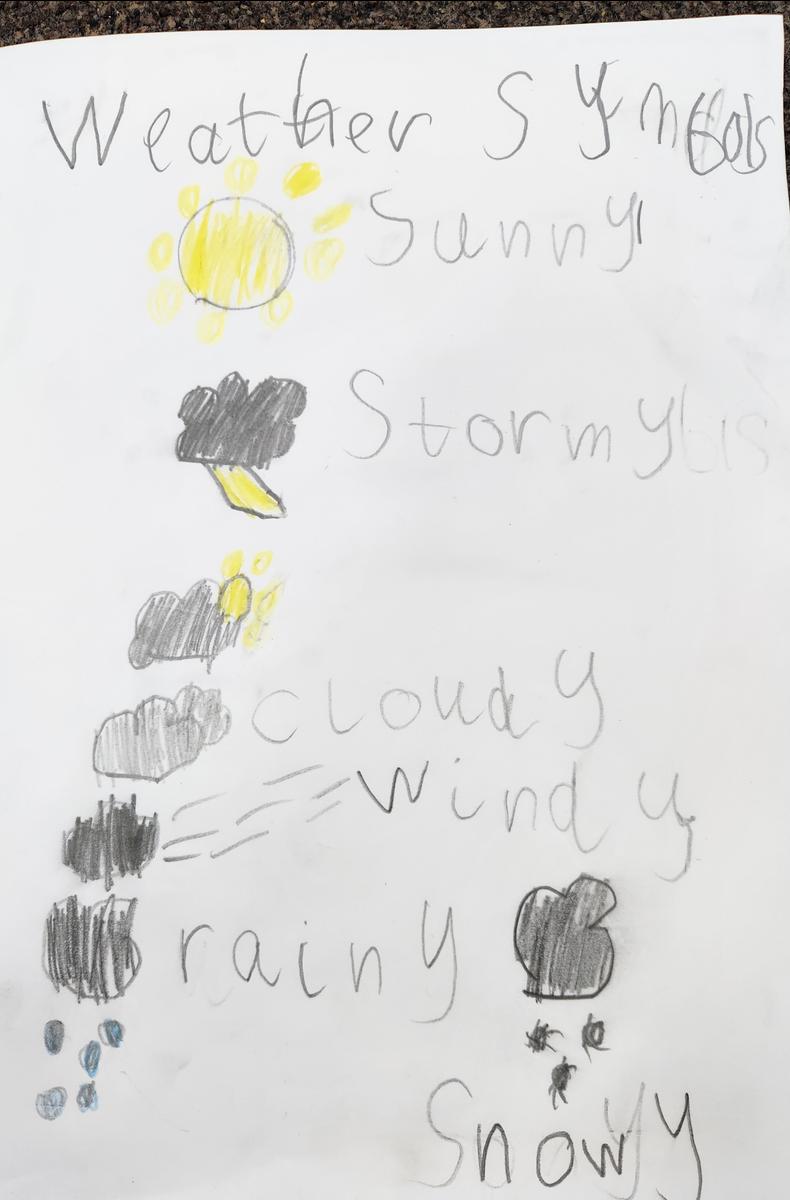 Weather Symbols
Sunny
Stormy
cloudy
windy
rainy
Snowy